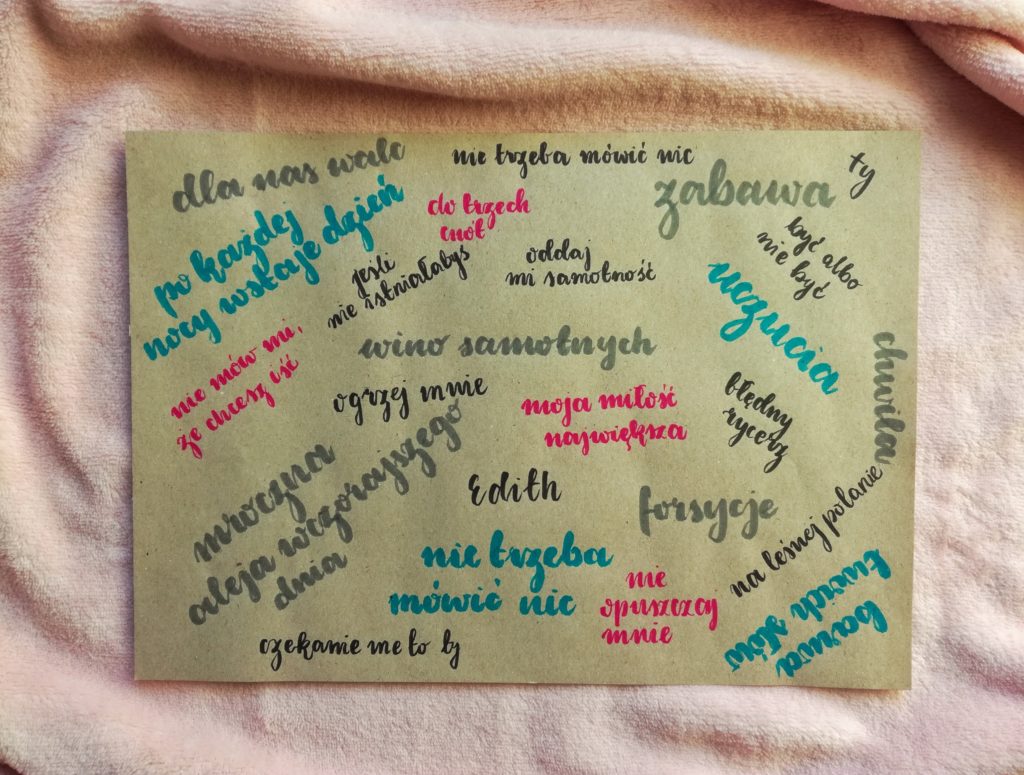 dla nas walc
nie trzeba mówić nic
ty
zabawa
po każdej
nocy wstaje dzień
do trzech
cnót
być albo
nie być
jeśli
nie istniałabyś
oddaj
mi samotność
uczucia
nie mów mi,
że chcesz iść
wino samotnych
chwila
ogrzej mnie
moja miłość
największa
błędny
rycerz
mroczna
aleja wczorajszego
dnia
Edith
forsycje
na leśnej polanie
nie trzeba
mówić nic
nie
opuszczaj
mnie
barwa
twoich słów
czekanie me to ty